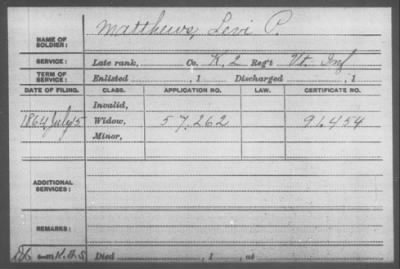 Matthews, Levi P.
NAME OF SOLDIER:
SERVICE: Late rank, Co. K, 2 Reg't Vt. Inf
TERM OF SERVICE: Enlisted , 1 Discharged , 1
DATE OF FILING. CLASS. APPLICATION NO. LAW. CERTIFICATE NO.
Invalid,
1864 July 5 Widow, 57.262 91.454
Minor,
ADDITIONAL SERVICES:
REMARKS:
Died , 1 , at